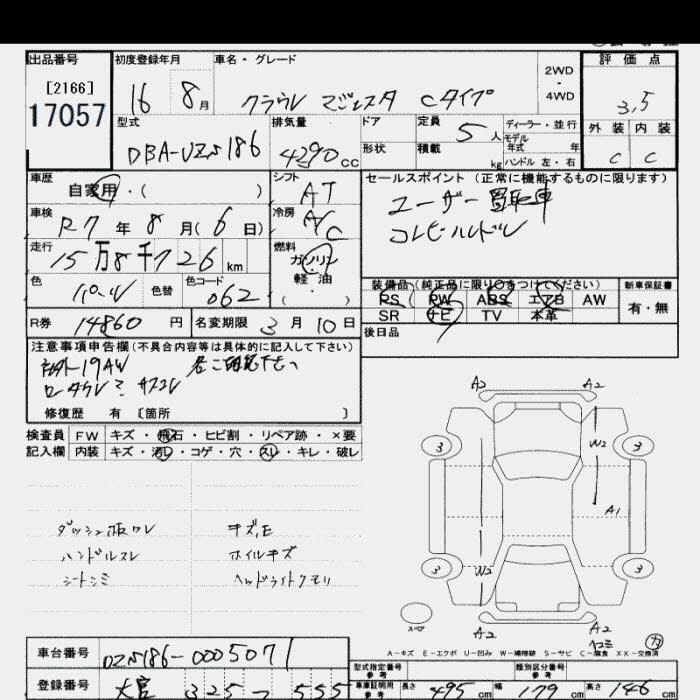 出品番号 初度登録年月 車名・グレード 評価点
[2166] 2WD
17057 16 8月 クラウン マジェスタ Cタイプ 4WD 3,5
型式 排気量 ドア 定員 5人 ディーラー・並行 外装 内装
DBA-UZS186 4290cc 形状 積載 kg モデル年式 年 C C
ハンドル 左・右
車歴 シフト セールスポイント (正常に機能するものに限ります)
自家用・( ) AT ユーザー買取車
車検 冷房 コンビハンドル
R7年8月(6日) A/C
走行 燃料
15万8千726km ガソリン
色 色替 色コード 軽・油 装備品(純正品に限り○をつけてください) 新車保証書
パール 062 ( ) PS PW ABS エアB AW 有・無
R券 14860円 名変期限 3月10日 SR ナビ TV 本革
後日品
注意事項申告欄(不具合内容等は具体的に記入して下さい)
社外19AW 各ご確認下さい
修復歴 有 [箇所 ]
検査員 FW キズ・飛石・ヒビ割・リペア跡・×要
記入欄 内装 キズ・汚レ・コゲ・穴・スレ・キレ・破レ
A2 A2
3 W2 3
A1
ダッシュ板ワレ キズ,E
ハンドルスレ ホイルキズ
シートシミ ヘッドライトクモリ
3 W2 3
A2 A2
A-キズ E-エクボ U-凹み W-補修跡 S-サビ C-腐食 XX-交換済
車台番号 UZS186-0005071
型式指定番号 参考 類別区分番号 参考
登録番号 大宮 325 555
車庫証明用 参考 長さ 495cm 幅 179cm 高さ 146cm